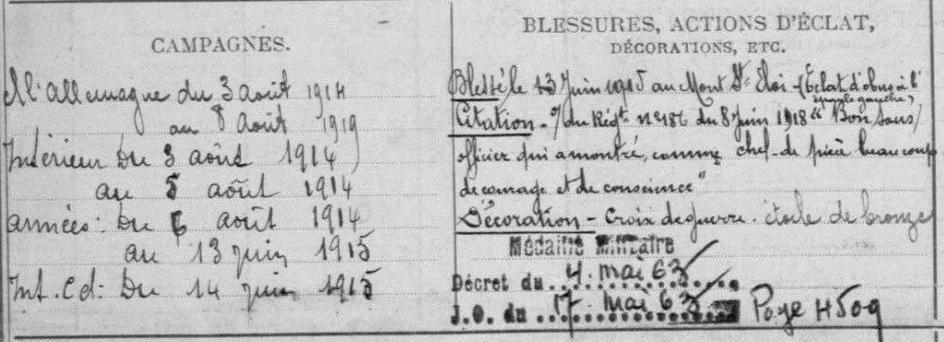 CAMPAGNES.
A l'allemagne du 3 août 1914
au 8 août 1919
Intérieur Du 3 août 1914
au 5 août 1914
armées: Du 6 août 1914
au 13 juin 1915
Int. Cd: Du 14 juin 1915
BLESSURES, ACTIONS D'ÉCLAT,
DÉCORATIONS, ETC.
Blessé, le 13 Juin 1915 au Mont St Eloi - (Eclat d'obus à l'
épaule gauche)
Citation - O/ du Régt n° 186 du 8 juin 1918 "Bon sous/
officier qui a montré, comme chef-de pièce beaucoup
de courage et de conscience"
Décoration - Croix de guerre - étoile de bronze
Médaille Militaire
Décret du 4. mai 63
J.O. du 17. mai 63 Page 4509